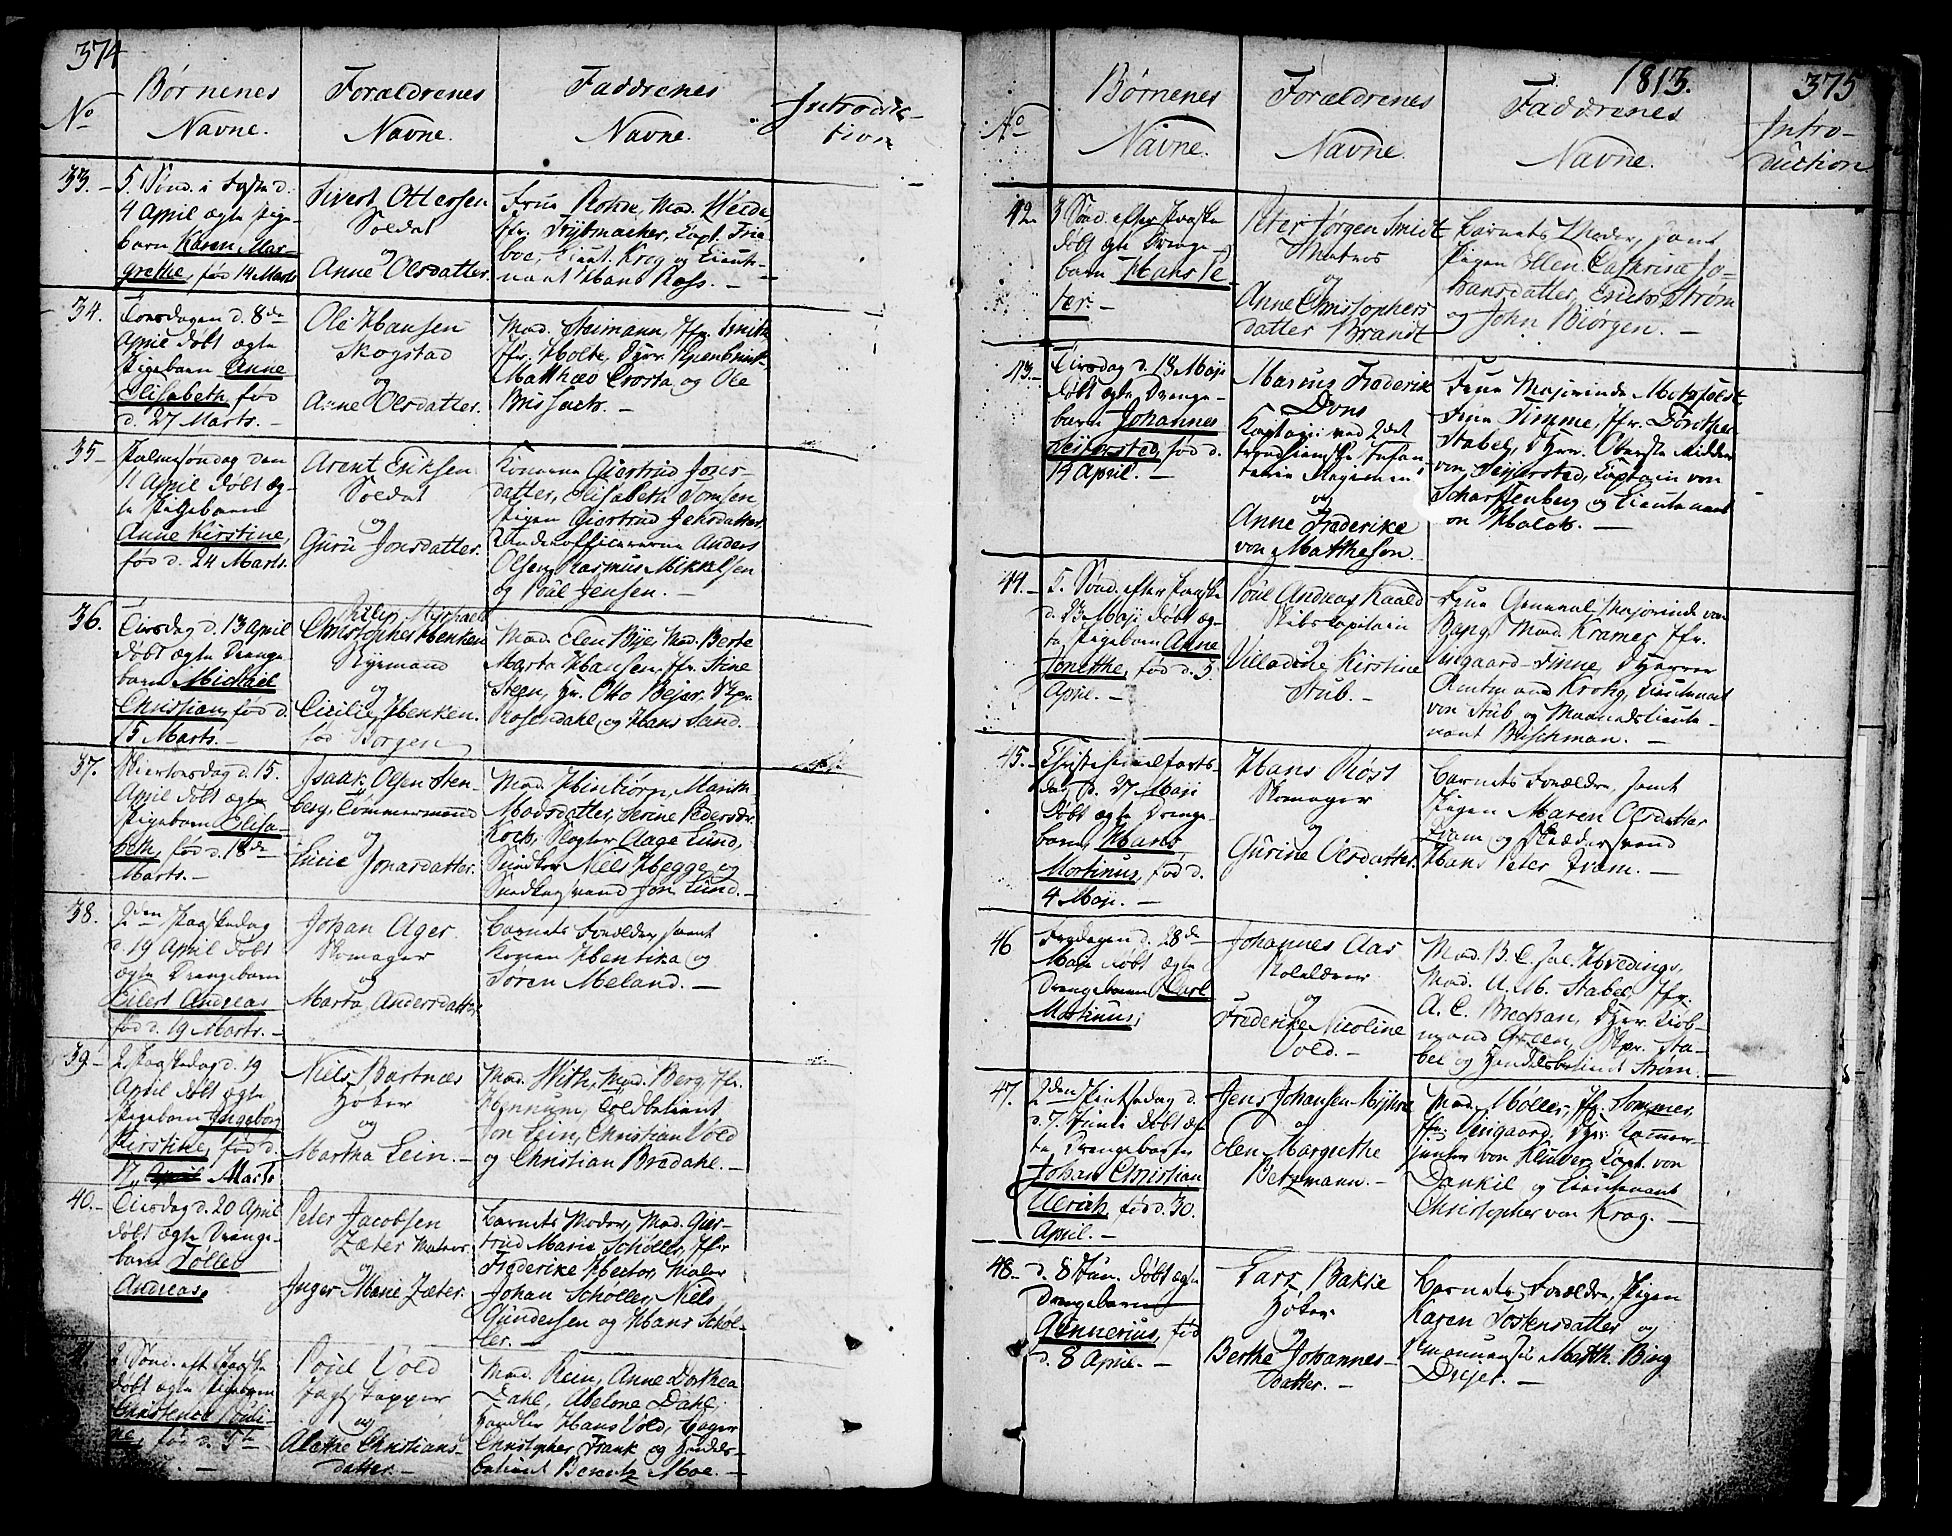 374
No
Børnenes
Navne.
Foraldrenes
Navne.
Faddrenes
Navne.
Introduc-
tion
33.
5. Sønd. i Faste d.
4 April ægte Pige-
barn Karen Mar-
grethe, fød 14 Marts
Sivert Ottersen
Soldat
og
Anne Olsdatter.
Frue Rohne, Mad. Weide,
Capt. Frie-
boe, Lieut. Krog og Lieut-
nant Hans Ross. -
34.
Torsdagen d. 8de
April døbt ægte
Pigebarn Anne
Elisabeth, fød
d. 27 Marts. -
Ole Hansen
Skogstad
og
Anne Olsdatter.
Mad. Steimann, Jfr. Smith
Jfr. Holte, Hr.
Matthæo Crosta, og Ole
35
Palmesøndag den
11 April døbt æg-
te Pigebarn
Anne Kirstine,
fød d. 24 Marts.
Arent Eriksen
Soldat
og
Guru Jonsdatter.
Konerne Giertrud Jons-
datter, Elisabeth Tomsen
Pigen Giertrud Jensdatter,
Underofficererne Anders
Olsen, Rasmus Mikkelsen
og Poul Jensen. -
36.
Tirsdag d. 13 April
døbt ægte Drenge-
barn Michael
Christian, fød d.
15 Marts. -
Philip Michael
Christopher Henken
og
Cicilie Henken
fød Borgen
Mad. Elen Bye, Mad. Berte
Marta Hansen, Jfr. Stine
Steen, Hr. Otto Bejer, Skpr.
Rosendahl, og Hans Sand.
37.
Skiertorsdag d. 15.
April døbt ægte
Pigebarn Elisa-
beth, fød d. 18de
Marts. -
Isaak Olsen Sten-
berg, Tømmermand
og
Lucie Jonasdatter.
Mad. Hinbiørn, Marith
Madsdatter, Serine Pedersdr.
Koch, Aage Lund,
Snedker Niels Hegge, og
Jon Lund. -
38.
2den Paaskedag
d. 19 April døbt
ægte Drengebarn
Eilert Andreas
fød d. 19 Marts. -
Johan Ager
Skomager
og
Marta Andersdatter
Barnets Forældre, samt
Konen Hentika og
Søren Meland. -
39. -
2 Paaskedag d. 19
April døbt ægte
Pigebarn Ingeborg
Kirstine, fød d.
17 April Marts
Niels Bartnæs
Høker
og
Martha Lein. -
Mad. With, Mad. Berg, Jfr.
Hennum, Toldbetient
Jon Lein, Christian Vold
og Christian Bredahl. -
40. -
Tirsdag d. 20 April
døbt ægte Drenge-
barn Tølle
Andreas,
Peter Jacobsen
Zæter Matros
og
Inger Marie Zæter.
Barnets Moder, Mad. Gier-
trud Marie Schøller, Jfr.
Frederike Hertor, Maler
Johan Schøller, Niels
Gundersen og Hans Schøl-
ler. -
2 Sønd. eft. Paaske
døbt ægte Pigebarn
Christence Pouli-
ne, fød d.
Poul Vold
og
Alethe Christians-
datter. -
Mad. Rein, Anne Dorthea
Dahl, Abelone Dahl,
Handler Hans Vold,
Christopher Frank og Handels-
betient Berentz Moe. -
1813.
375
No
Børnenes
Navne.
Foraldrenes
Navne.
Faddrenes
Navne.
Intro-
duction
42
3 Sønd. efter Paaske
døbt ægte Drenge-
barn Hans Pe-
ter -
Peter Jørgen Smidt
Matros
og
Anne Christophers
datter Brandt
Barnets Moder, samt
Pigen Ellen Cathrine Jo-
hansdatter, Strøm
og John Biørgen. -
43. -
Tirsdag d. 18 Maji
døbt ægte Drenge-
barn Johannes
Sejersted, fød d.
14 April. -
Marcus Frederik
Dons
Kaptajn ved 2det
trondhiemske Infan-
terie Regiment
og
Anne Frederike
von Matthesen.
Frue Majorinde Motzfeldt
Frue Timme, Jfr. Dorthea
Stabel, Herr Oberste Ridder
von Sejersted, Captain von
Scharffenberg og Lieutenant
von Holck. -
44. -
5. Sønd. efter Paaske
d. 23 Maji døbt æg-
te Pigebarn Anne
Jonette, fød d. 5
April. -
Poul Andreas Kaald
Skibscapitain
og
Villadine Kirstine
Stub. -
Frue General Majorinde von
Bang, Mad. Kramer, Jfr.
Unsgaard Finne, Herrer
Amtmand Krohg, Lieutenant
von Stub og Maanedslieute-
nant Buschman. -
45. -
Christi Himmelfarts-
dag d. 27 Maji
døbt ægte Drenge-
barn, Hans
Martinus, fød d.
4 Maji. -
Hans Røst
Skomager
og
Gurine Olsdatter.
Barnets Forældre, samt
Pigen Maren Olsdatter
Tram og Skræddersvend
Hans Peter Tram. -
46
Fredagen d. 28de
Maji døbt ægte
Drengebarn Carl
Martinus,
Johannes Aas
Skolelærer
og
Frederike Nicoline
Vold. -
Mad. B. C. Sal. Hvedings,
Mad. U. M. Stabel, Jfr.
A. C. Brechan, Herr Kiøb-
mand Green, Skpr. Sta-
bel og Handelsbetient Strøm.
47.
2den Pintsedag d.
d. 7. Junii døbt æg-
te Drengebarn
Johan Christian
Ulrich, fød d. 30.
April. -
Jens Johansen Myhre
og
Elen Margrethe
Betzmann. -
Mad. Møller, Jfr. Sommer,
Jfr. Unsgaard, Hr. Kamer-
junker von Klüver, Capt. von
Dankil og Lieutenant
Christopher von Krog. -
48. -
d. 8 Jun. døbt ægte
Drengebarn
Gunnerius, fød
d. 8 April. -
Lars Bakke
Høker
og
Berthe Johannes-
datter. -
Barnets Forældre, Pigen
Karen Tostensdatter og
Matth. Bing
Drejer. -